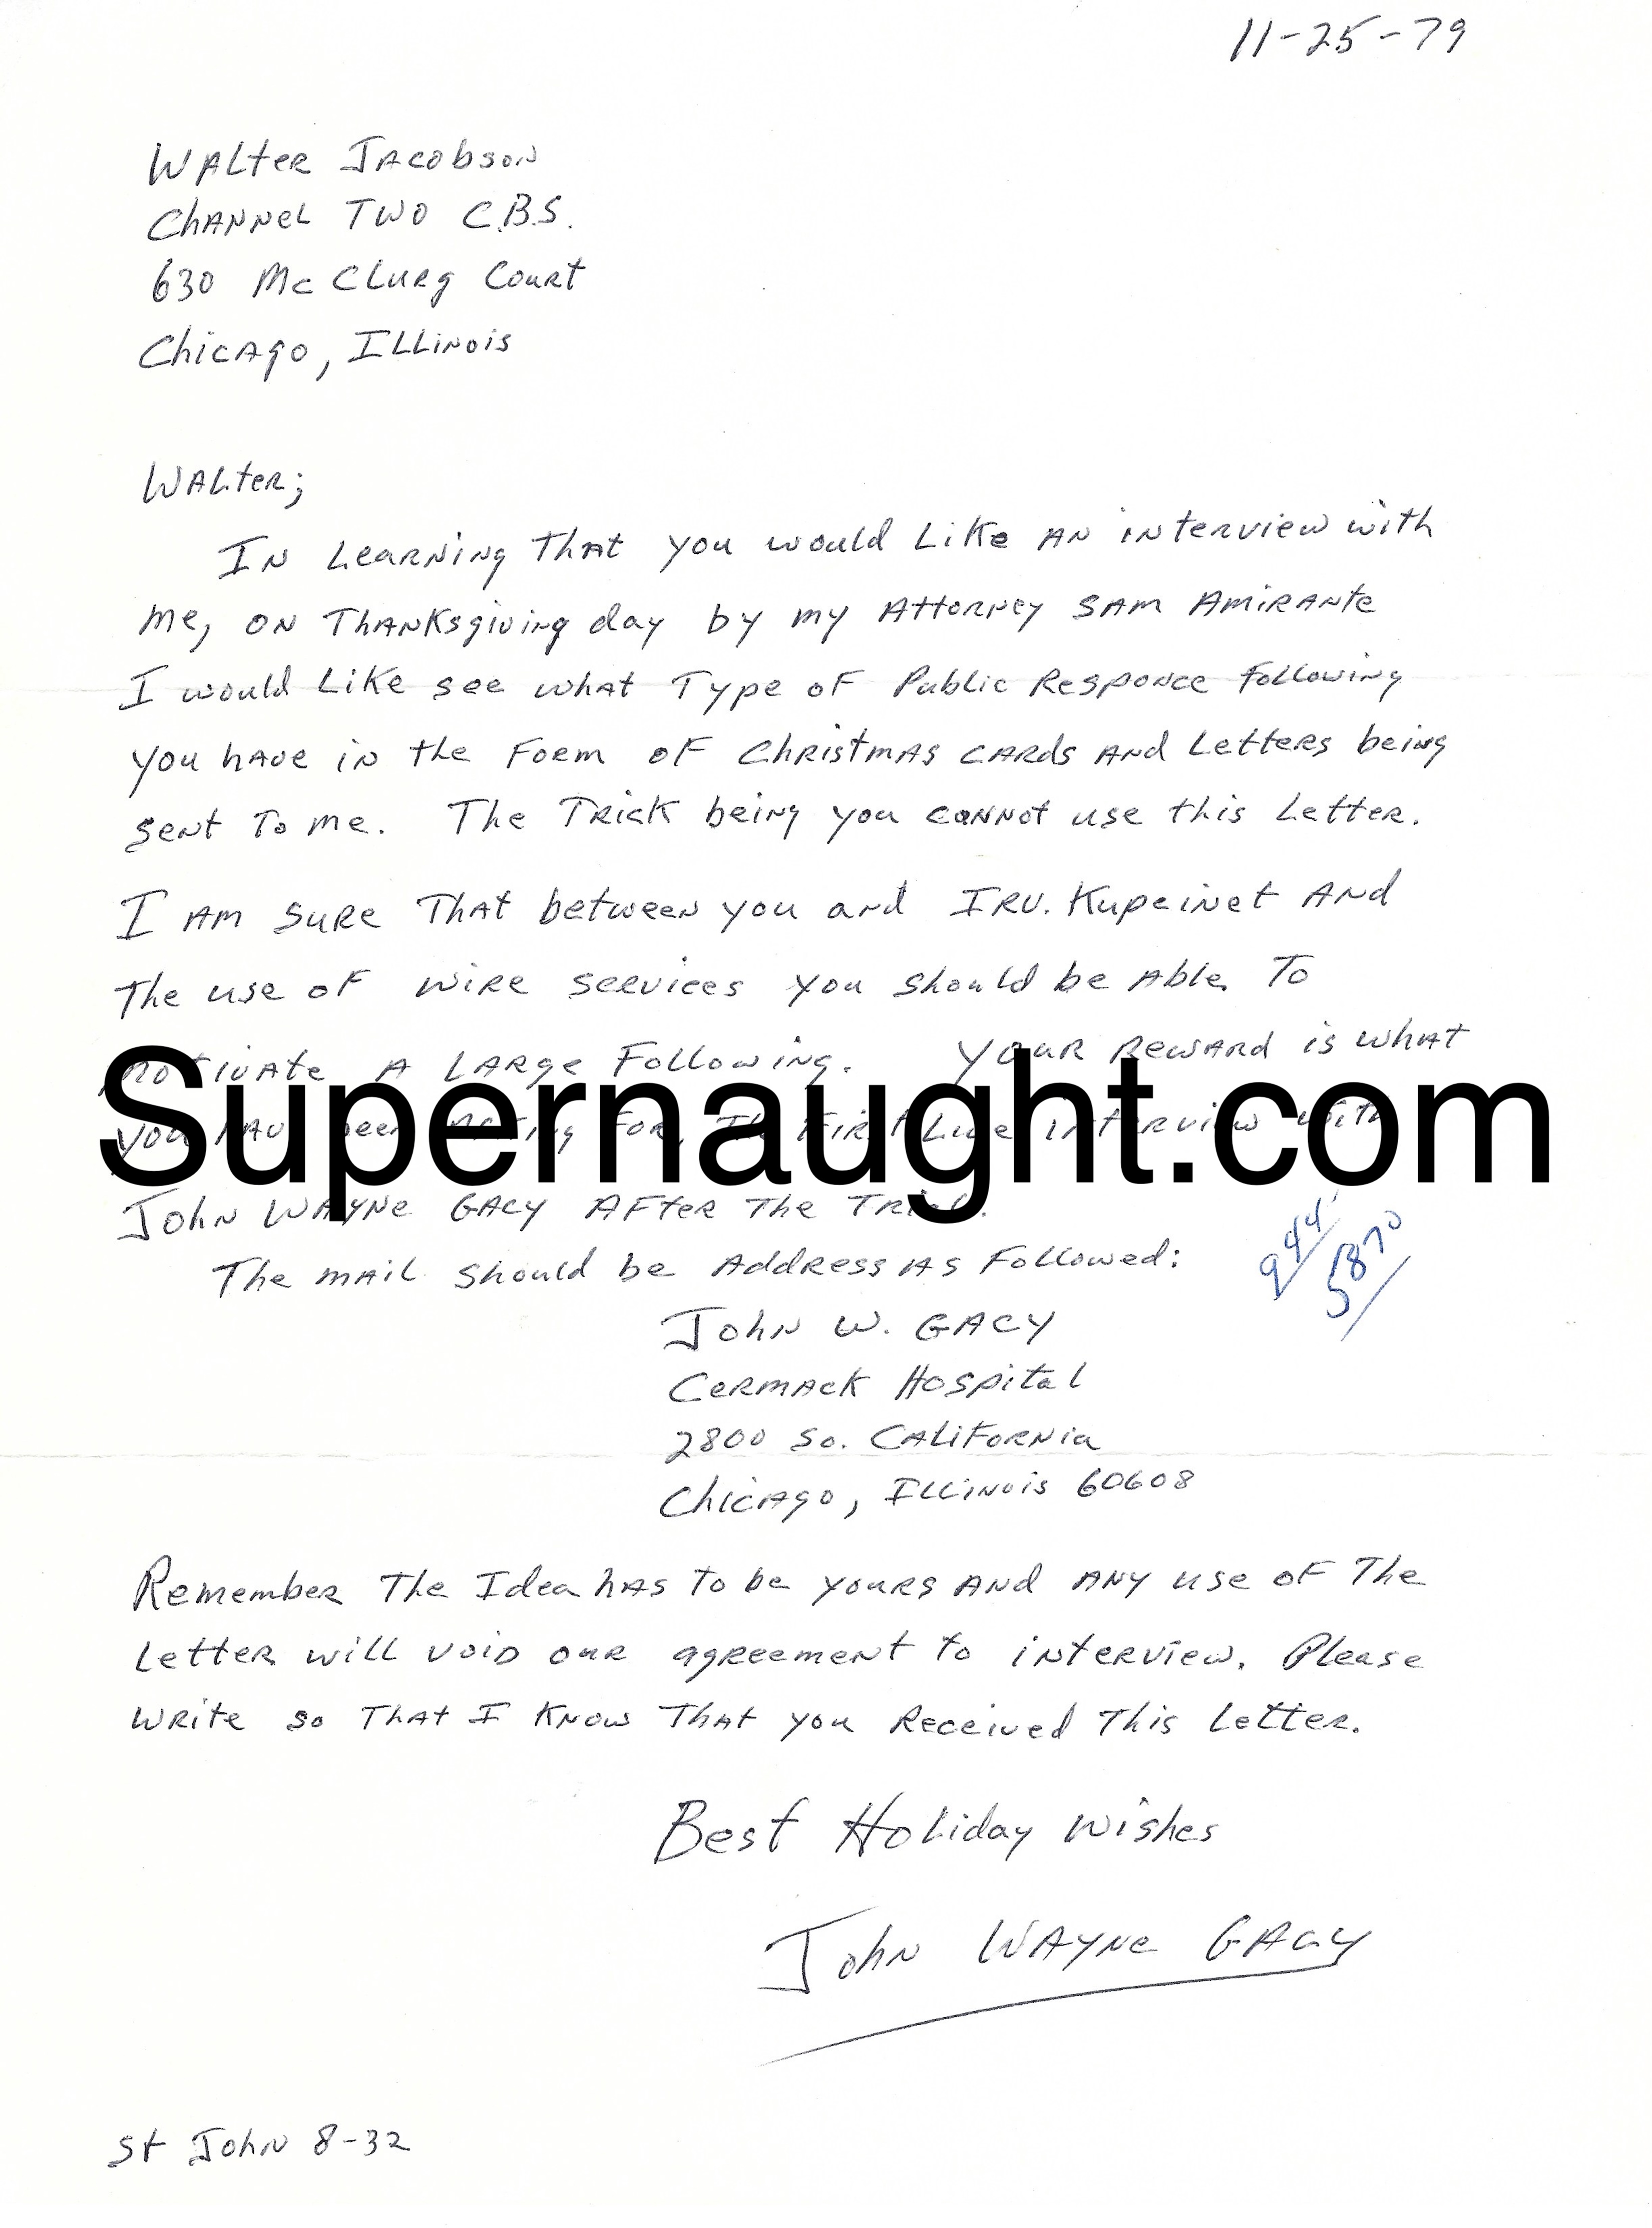 11-25-79
Walter Jacobson
Channel Two C.B.S.
630 McClurg Court
Chicago, Illinois
Walter;
In Learning that you would Like an interview with
me, on Thanksgiving day by my Attorney Sam Amirante
I would Like see what Type of Public Responce following
you have in the form of Christmas cards and Letters being
sent to me. The Trick being you cannot use this Letter.
I am sure that between you and Irv. Kupcinet and
the use of wire services you should be able to
motivate a Large following. Your reward is what
you for, First Live interview with
John Wayne Gacy After the Trial.
The mail should be Address as Followed:
John W. Gacy
Cermack Hospital
2800 So. California
Chicago, Illinois 60608
Remember the Idea has to be yours and any use of the
Letter will void our agreement to interview. Please
write so that I know that you received this Letter.
Best Holiday wishes
John Wayne Gacy
St John 8-32
944
5870
Supernaught.com